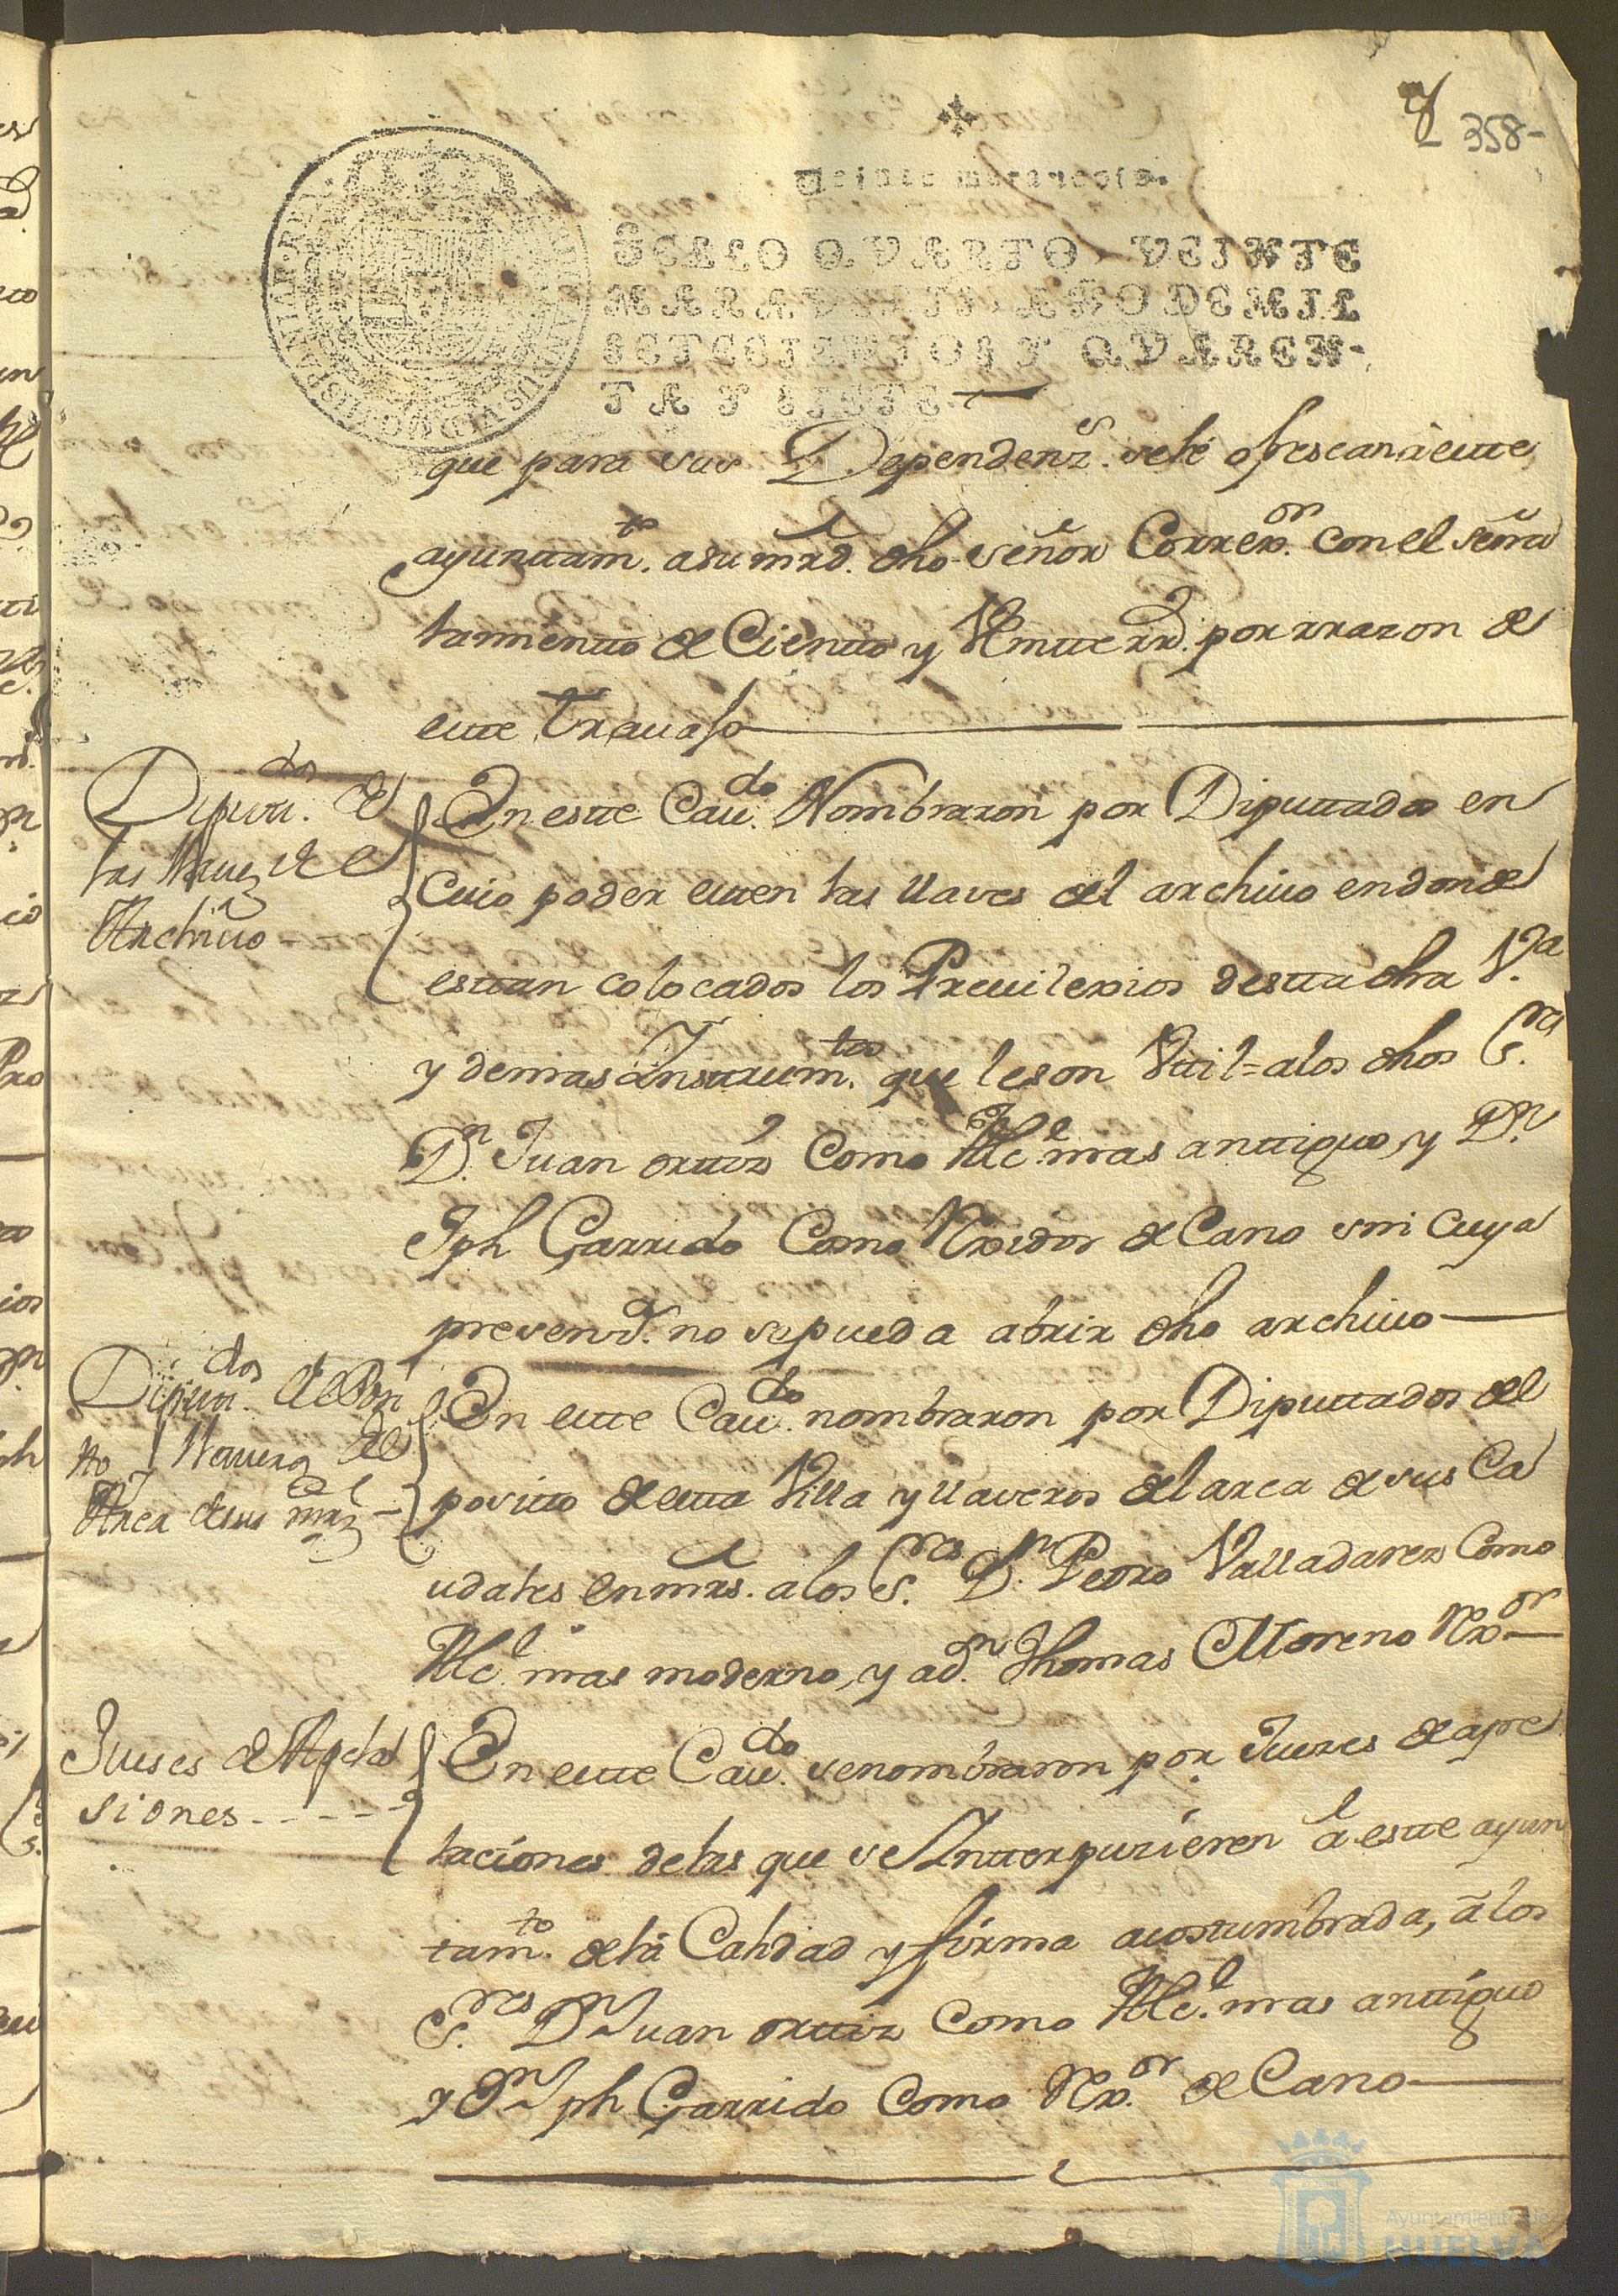 358-
Veinte maravedis.
SELLO QVARTO, VEINTE
MARAVEDIS, AÑO DE MIL
SETECIENTOS Y QVAREN-
TA Y SIETE.
que para sus Dependenz.s sele ofrescan â estte
ayunttam.to a su mrd. dho señor Correx.or con el señal
lamientto de Cientto y Veintte rr.d por rrazon de
estte travajo
Diputt.dos de
las llaves del
Archivo
En estte Cav.do Nombraron por Diputtados en
cuio poder estten las llaves del archivo en donde
esttan colocados los Previlexios destta dha V.a
y demas Insttrum.tos que le son Vttil= a los dhos S.res
D.n Juan orttiz como Alc.e mas anttiguo, y D.n
Jph Garrido Como Rexidor de Cano sin cuya
presenz.a no se pueda abrir dho archivo
Diputt.dos del Posi
tto y llaveros del
Arca de sus mrs
En estte Cav.do nombraron por Diputtados del
positto de estta Villa y llaveros del arca de sus Ca
udales en mrs. a los S.res D.n Pedro Valladarez Como
Alc.e mas moderno, y a D.n Thomas Moreno Rex.or
Jueses de Apela
siones
En estte Cav.do se nombraron por Juezes de ape
laciones de las que se Intterpuzieren â estte ayun
tam.to de la Calidad y firma acostumbrada, â los
S.res D.n Juan orttiz Como Alc.e mas anttiguo
y D.n Jph Garrido Como Rex.or de Cano
Ayuntamiento de
HUELVA